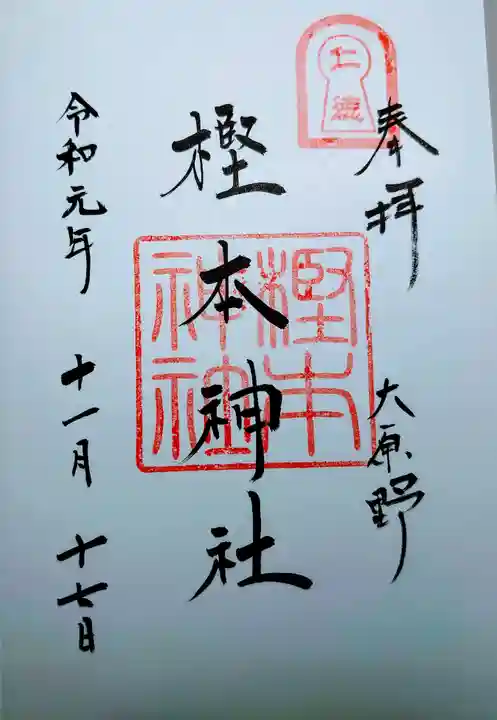 仁徳
奉拝
大原野
樫本神社
樫本神社
令和元年 十一月 十七日